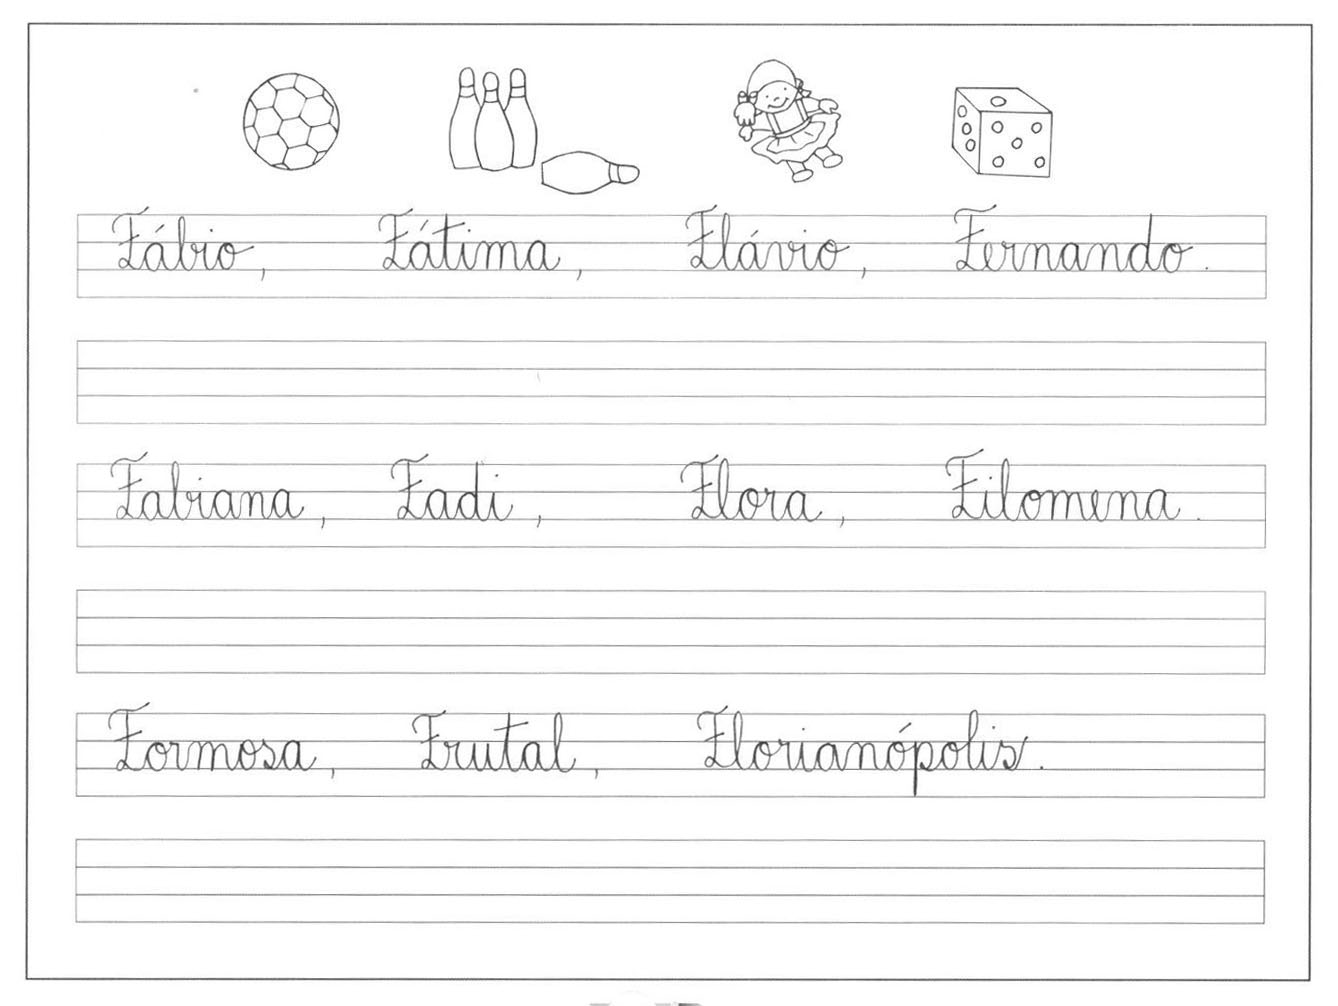 Fábio, Fátima, Flávio, Fernando.
Fabiana, Fadi, Flora, Filomena.
Formosa, Frutal, Florianópolis.